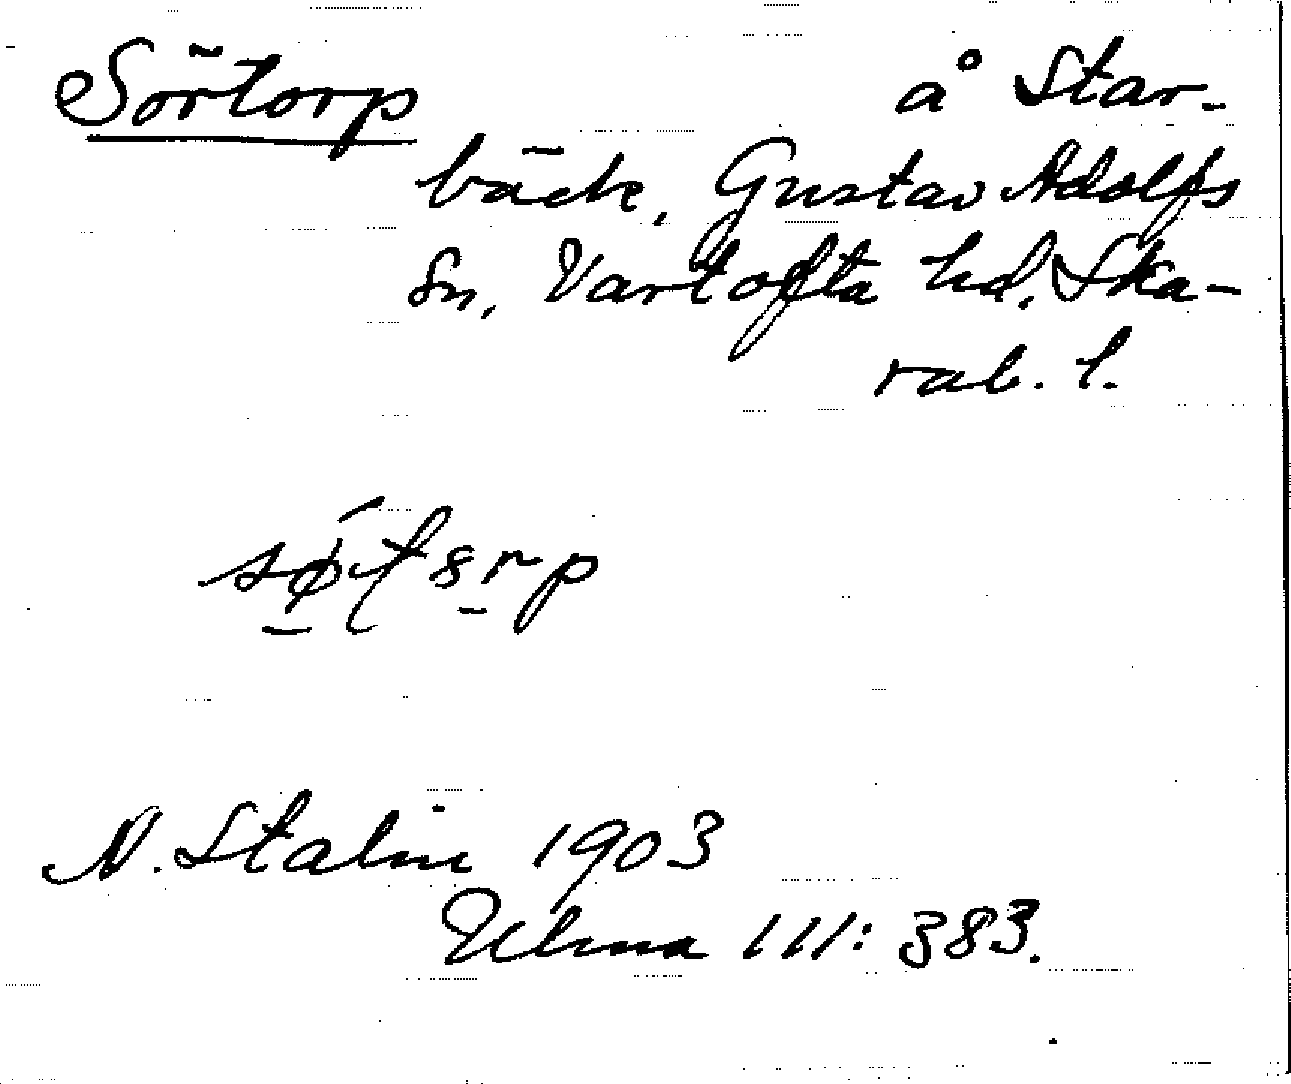 Sörtorp å Star-
bäck, Gustav Adolfs
Sn, Vartofta hd. Ska-
rab. l.
N. Stalin 1903
Ulma 111: 383.